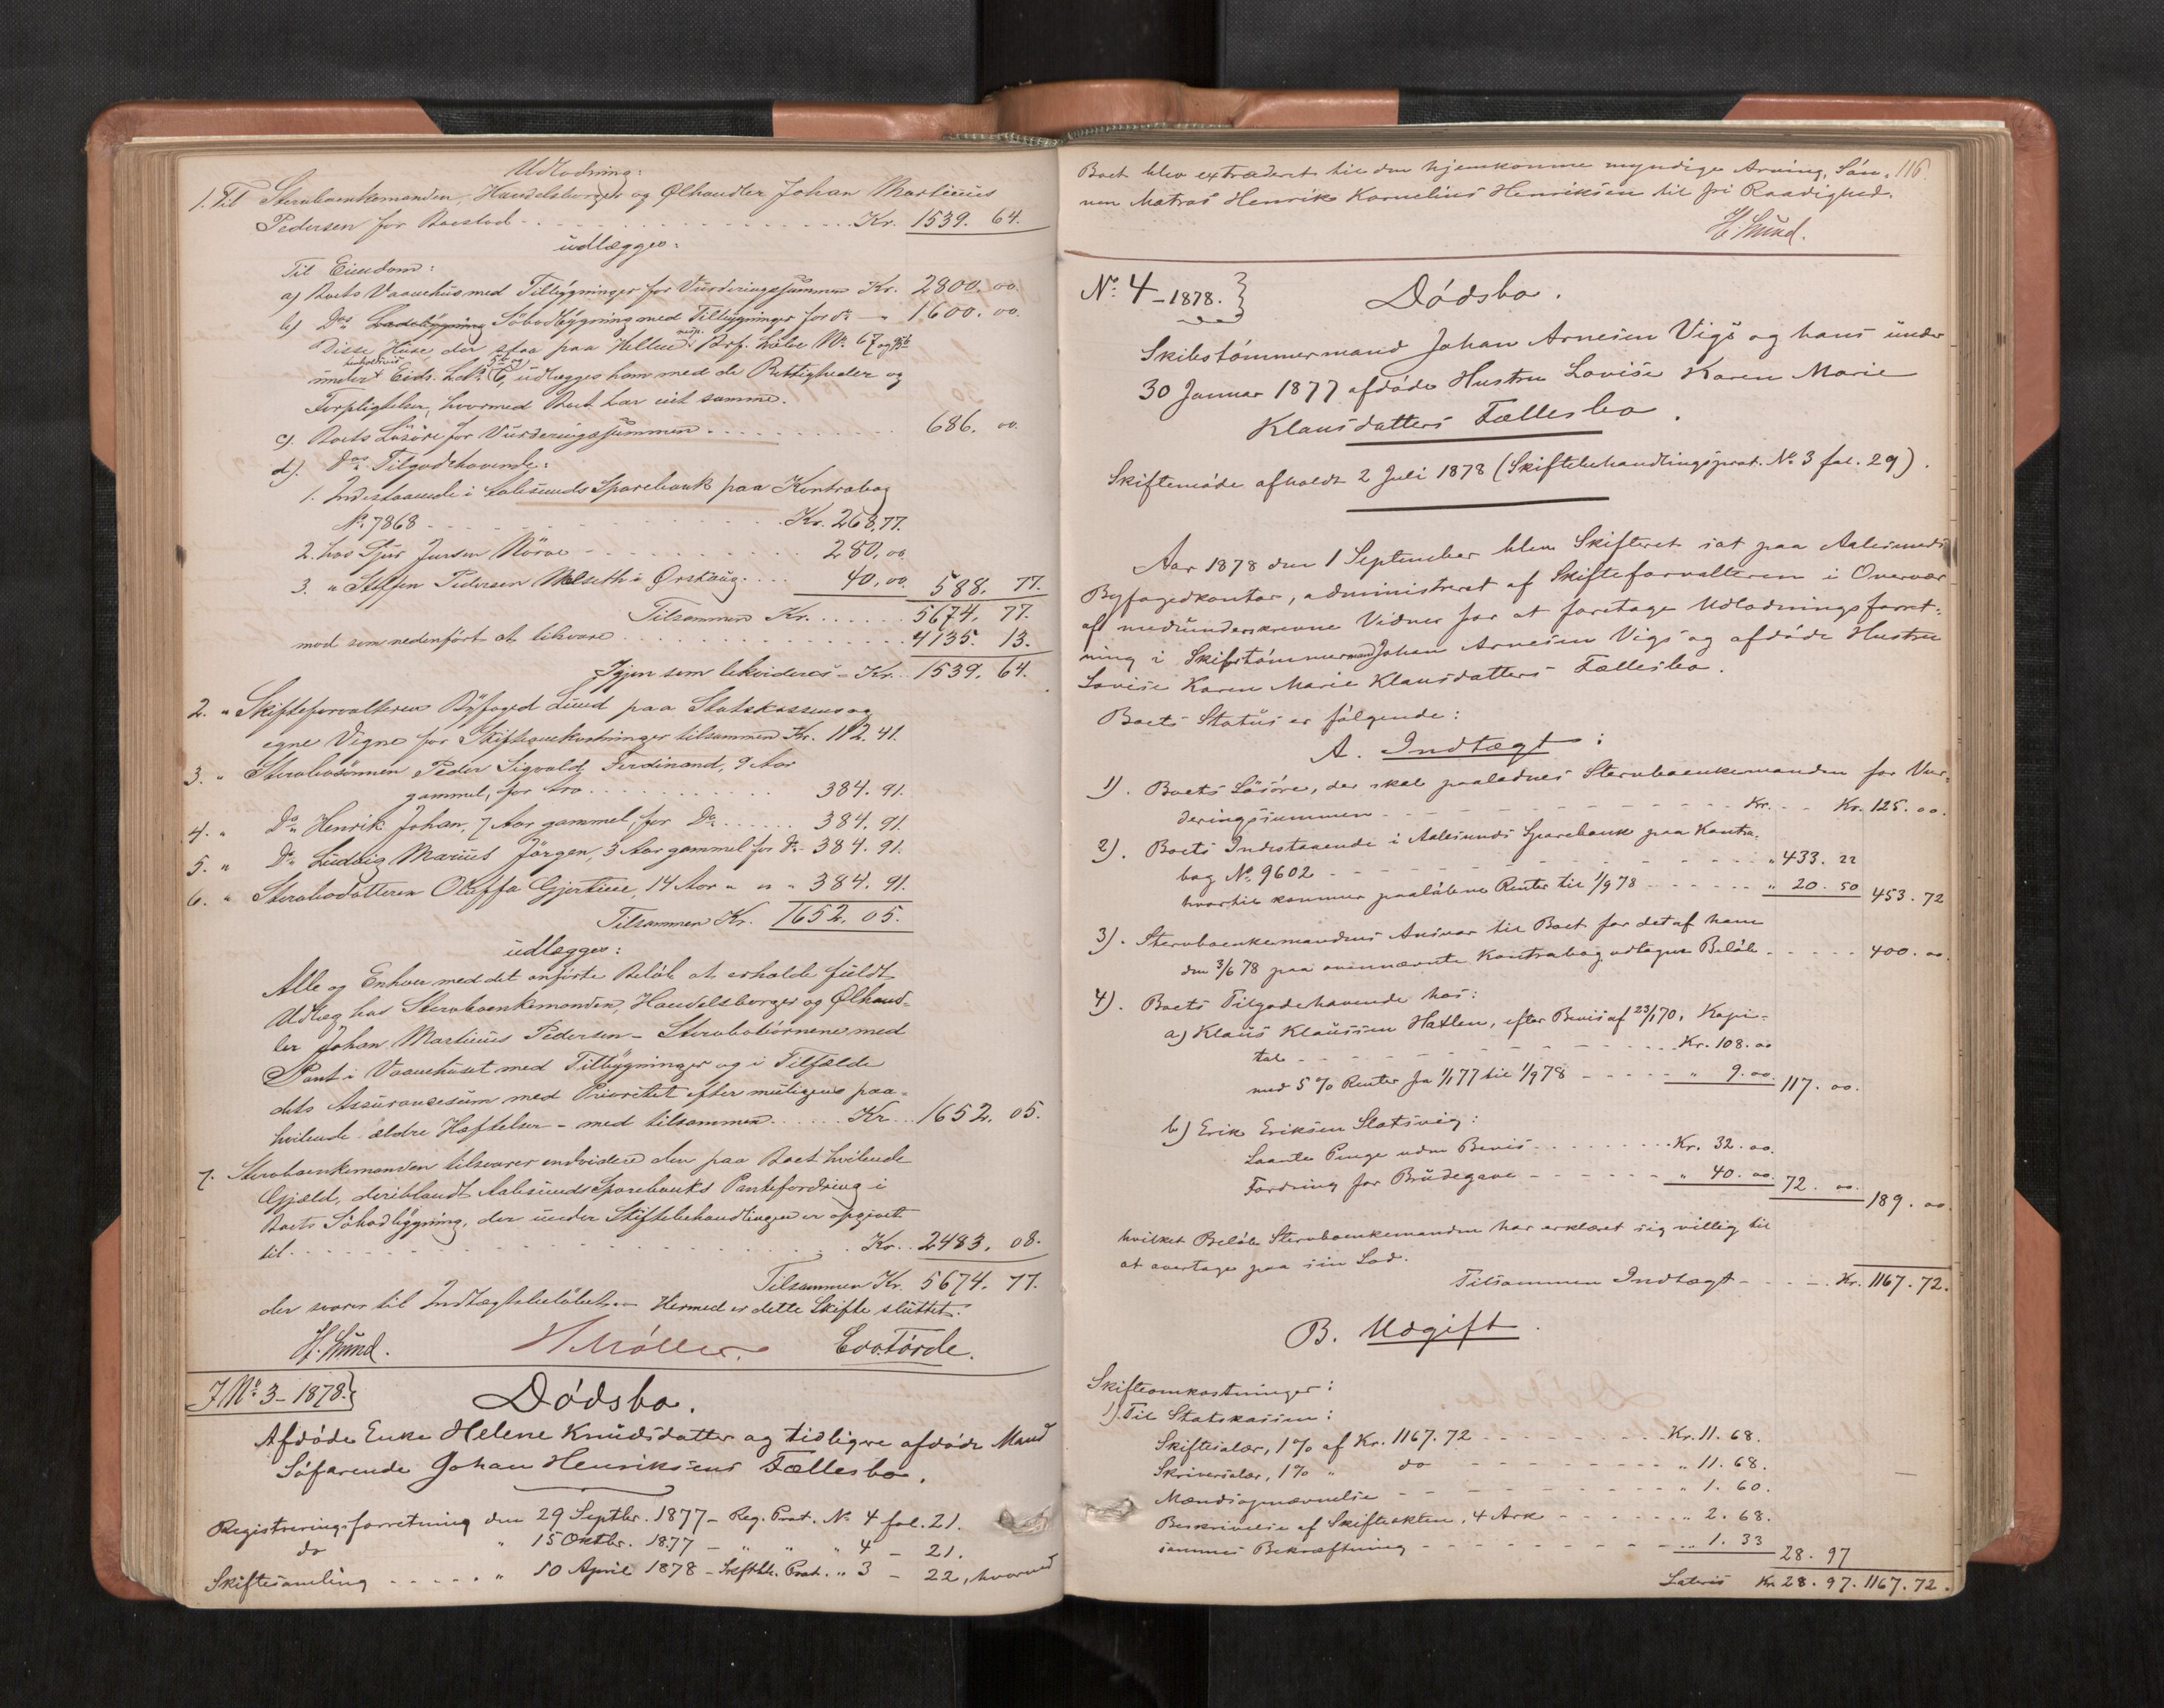 Udlodning:
1. Til Stervboenkemanden, Handelsborger og Ølhandler Johan Martinus
Pedersen for Boeslod - . . . . . . . Kr. 1539. 64.
udlægges:
Til Eiendom:
a) Boets Vaanehus med Tilbygninger for Vurderingssummen Kr. 2800. 00.
b) Dos Søbodbygning med Tilbygninger for do - " 1600. 00.
Disse Huse der staa paa Hellen resp. Brf. Løbe No. 67 og
under Eids. L. No. 5b og 6, udlægges ham med de Rettigheder og
Forpligtelser, hvormed Boet har eiet samme.
c). Boets Løsøre for Vurderingssummen . . . . . . 686. 00
d). Dos Tilgodehavende:
1. Indestaaende i Aalesunds Sparebank paa Kontrabog
No. 7868 . . . . . . Kr. 268,77.
2. hos Sjur Jensen Nörve - . . . . . 280, 00
3. " Steffen Pedersen Welseth i Ørskoug. . . . 40, 00. 588, 77.
Tilsammen Kr. . . . . . 5674, 77.
mod som nedenført at tilsvare . . . . . . 4135. 13.
Igjen som likvideres - Kr. . 1539. 64.
2. " Skifteforvalteren Byfoged Lund paa Statskassens og
egne Vegne for Skifteomkostninger tilsammen Kr. 112. 41.
3. " Stervbosønnen Peder Sigvald Ferdinand, 9 Aar
gammel, for Arv . . . . . . 384. 91.
4. " Do Henrik Johan, 7 Aar gammel, for Do . . . . . 384. 91.
5. " Do Ludvig Marius Jörgen, 3 Aar gammel for Do - 384. 91.
6. " Stervbodatteren Oluffa Gjertine, 14 Aar " " " 384. 91.
Tilsammen Kr. 1652. 05.
udlægges:
Alle og Enhver med det anførte Beløb at erholde fuldt
Udlæg hos Stervboenkemanden, Handelsborger og Ølhand-
ler Johan Martinus Pedersen - Stervbobørnene med
Pant i Vaanehuset med Tilbygninger og i Tilfælde
dets Assurancesum med Prioritet efter muligens paa-
hvilende ældre Hæftelser - med tilsammen . . . . . Kr . . 1652. 05.
7. Stervboenkemanden tilsvarer endvidere den paa Boet hvilende
Gjæld, deriblandt Aalesunds Sparebanks Pantefordring i
Boets Søbodbygning, der under Skiftebehandlingen er opgivet
til . . . . . . . Kr. . 2483. 08.
Tilsammen Kr. 5674. 77.
der svarer til Indtægtsbeløbet. - Hermed er dette Skifte sluttet.
H. Lund. H Møller. Ed. Torde.
J No. 3 - 1878.
Dödsbo.
Afdöde Enke Helene Knudsdatter og tidligere afdöde Mand
Söfarende Johan Henriksens Fællesbo.
Registreringsforretning den 29 Septbr. 1877 - Reg. Prot. No 4 fol. 21.
do " 15 Oktbr. 1877 - " " " 4 - 21.
Skiftesamling - - - - - " 10 April 1878 - Skftbh. Prot. " 3 - 22, hvorved
Boet blev extraderet til den hjemkomne myndige Arving, Søn- 116.
nen Matros Henrik Kornelius Henriksen til fri Raadighed.
H Lund.
No. 4 - 1878.
Dödsbo.
Skibstömmermand Johan Arnesen Vigö og hans under
30 Januar 1877 afdöde Hustru Lovise Karen Marie
Klausdatters Fællesbo.
Skiftemöde afholdt 2 Juli 1878 (Skiftebehandlingsprot. No 3 fol. 29).
Aar 1878 den 1 September blev Skifteret sat paa Aalesunds
Byfogedkontor, administreret af Skifteforvalteren i Overvær
af medunderskrevne Vidner for at foretage Udlodningsforret-
ning i Skibstömmermand Johan Arnesen Vigö og afdöde Hustru
Lovise Karen Marie Klausdatters Fællesbo.
Boets Status er fölgende:
A. Indtægt:
1). Boets Lösöre, der skal paalodnes Stervboenkemanden for Vur-
deringssummen - - - - - - Kr. - - Kr. 125. 00.
2). Boets Indestaaende i Aalesunds Sparebank paa Kontra-
bog No. 9602 - - - - - - " 433. 22
hvortil kommer paalöbne Renter til 1/9 78 - - - - - " 20. 50 453. 72
3). Stervboenkemandens Ansvar til Boet for det af ham
den 3/6 78 paa ovennævnte Kontrabog udtagne Belöb - - - - - 400. 00
4). Boets Tilgodehavende hos:
a) Klaus Klaussen Hatlen, efter Bevis af 23/1 70, Kapi-
tal - - - - - - Kr. 108. 00
med 5% Renter fra 1/1 77 til 1/9 78 - - - - - " 9. 00. 117. 00.
b) Erik Eriksen Slotsvig:
Laante Penge uden Bevis - - - - - Kr. 32. 00.
Fordring for Brudegave - - - - - " 40. 00. 72. 00. 189. 00.
hvilket Belöb Stervboenkemanden har erklæret sig villig til
at overtage paa sin Lod.
Tilsammen Indtægt - - - - Kr. 1167. 72.
B. Udgift.
Skifteomkostninger:
1). Til Statskassen:
Skiftesalær, 1% af Kr. 1167. 72 - - - - - Kr. 11. 68.
Skriversalær, 1% " do - - - - - " 11. 68.
Mændsopnævnelse - - - - - " 1. 60.
Beskrivelse af Skifteakten, 4 Ark - - - - - " 2. 68.
sammes Bekræftning - - - - - " 1. 33 28. 97
Lateris Kr. 28. 97. 1167. 72.